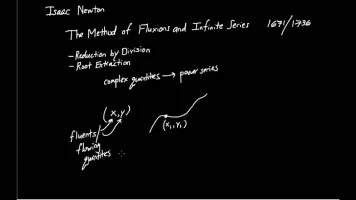 Isaac Newton
The Method of Fluxions and Infinite Series 1671/1736
- Reduction by Division
- Root Extraction
complex quantities → power series
(x, y)
(x₁, y₁)
fluents/
flowing
quantities